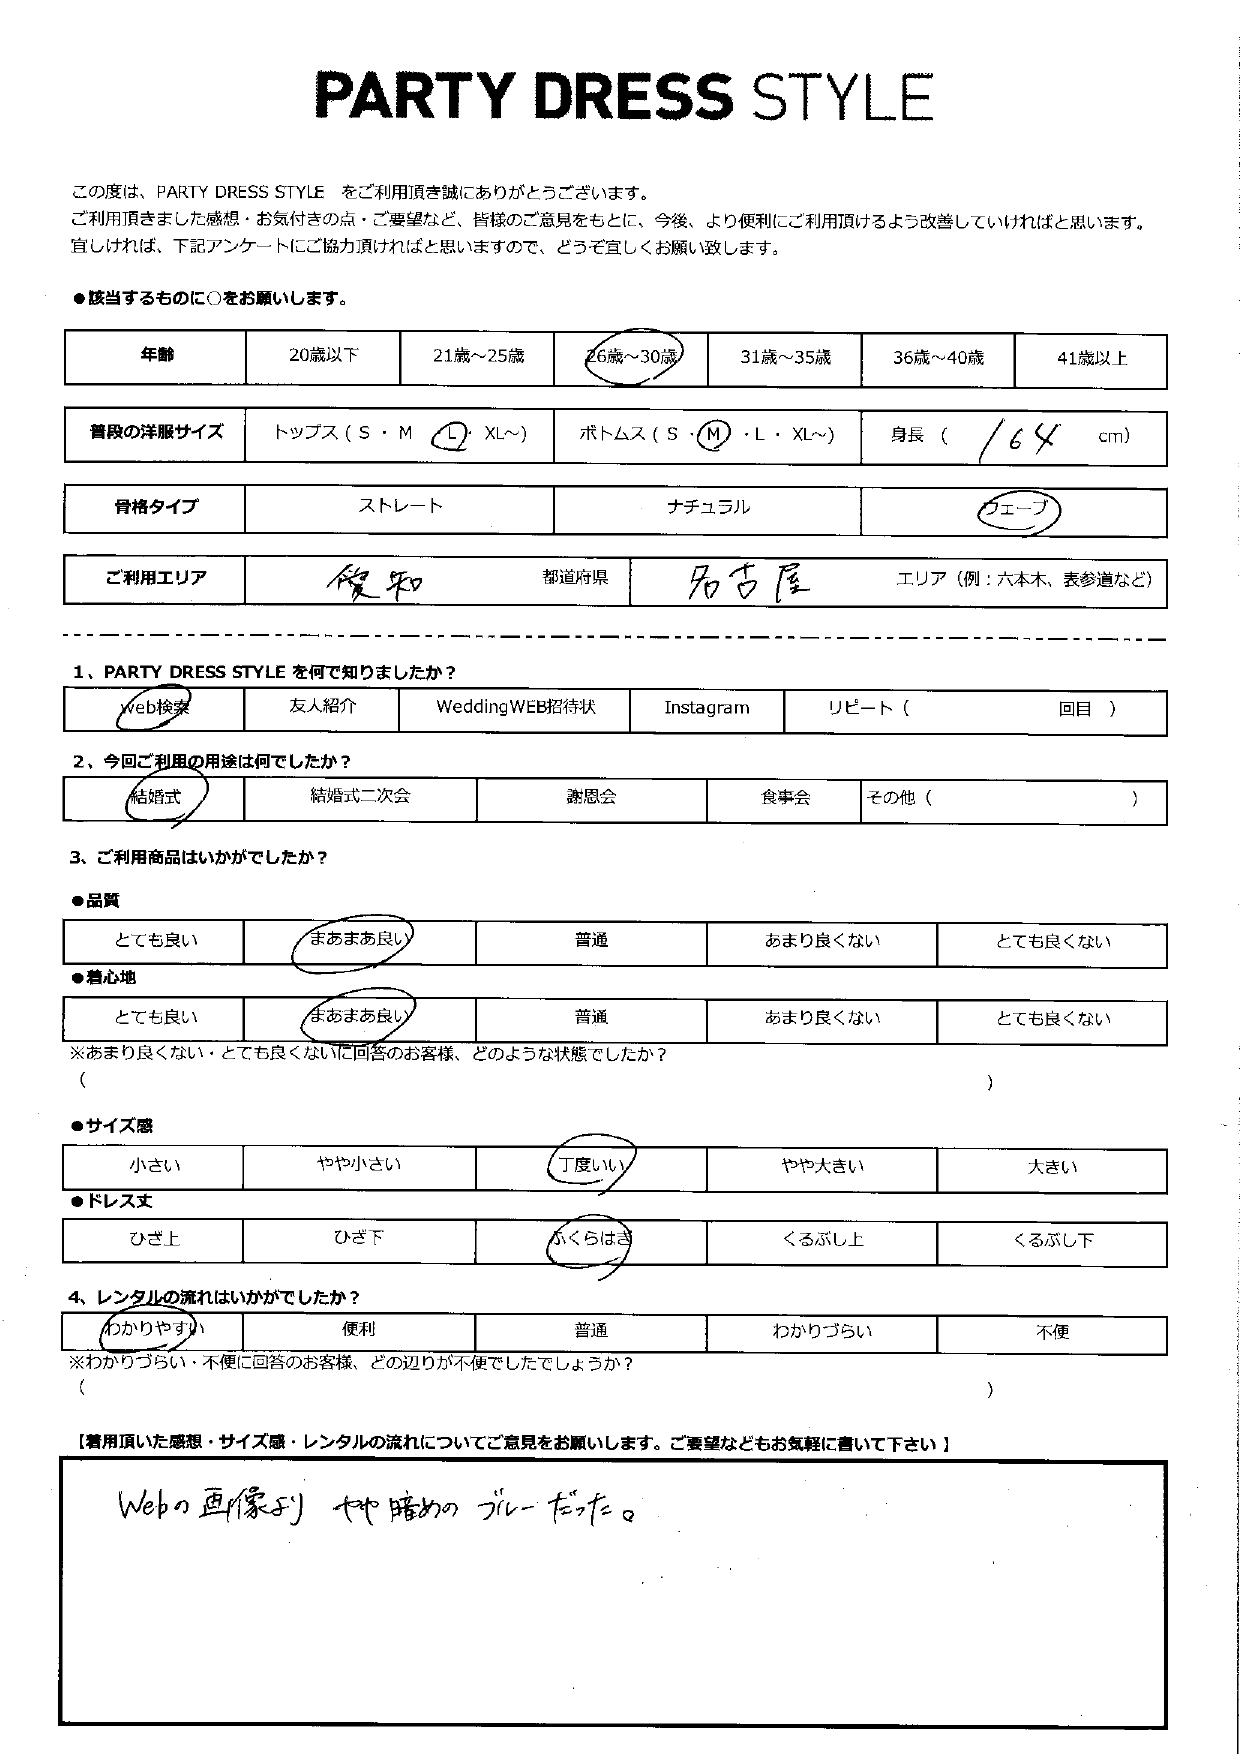 PARTY DRESS STYLE
この度は、PARTY DRESS STYLE をご利用頂き誠にありがとうございます。
ご利用頂きました感想・お気付きの点・ご要望など、皆様のご意見をもとに、今後、より便利にご利用頂けるよう改善していければと思います。
宜しければ、下記アンケートにご協力頂ければと思いますので、どうぞ宜しくお願い致します。
●該当するものに○をお願いします。
年齢 20歳以下 21歳～25歳 26歳～30歳 31歳～35歳 36歳～40歳 41歳以上
普段の洋服サイズ トップス ( S ・ M L・ XL～) ボトムス ( S ・M ・L ・ XL～) 身長 ( 164 cm)
骨格タイプ ストレート ナチュラル ウェーブ
ご利用エリア 愛知 都道府県 名古屋 エリア（例：六本木、表参道など）
1、PARTY DRESS STYLE を何で知りましたか？
web検索 友人紹介 WeddingWEB招待状 Instagram リピート（ 回目 ）
2、今回ご利用の用途は何でしたか？
結婚式 結婚式二次会 謝恩会 食事会 その他（ ）
3、ご利用商品はいかがでしたか？
●品質
とても良い まあまあ良い 普通 あまり良くない とても良くない
●着心地
とても良い まあまあ良い 普通 あまり良くない とても良くない
※あまり良くない・とても良くないに回答のお客様、どのような状態でしたか？
（ ）
●サイズ感
小さい やや小さい 丁度いい やや大きい 大きい
●ドレス丈
ひざ上 ひざ下 ふくらはぎ くるぶし上 くるぶし下
4、レンタルの流れはいかがでしたか？
わかりやすい 便利 普通 わかりづらい 不便
※わかりづらい・不便に回答のお客様、どの辺りが不便でしたでしょうか？
（ ）
【着用頂いた感想・サイズ感・レンタルの流れについてご意見をお願いします。ご要望などもお気軽に書いて下さい】
Webの画像より やや暗めの ブルーだった。